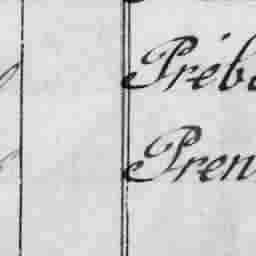 Préb
Pren